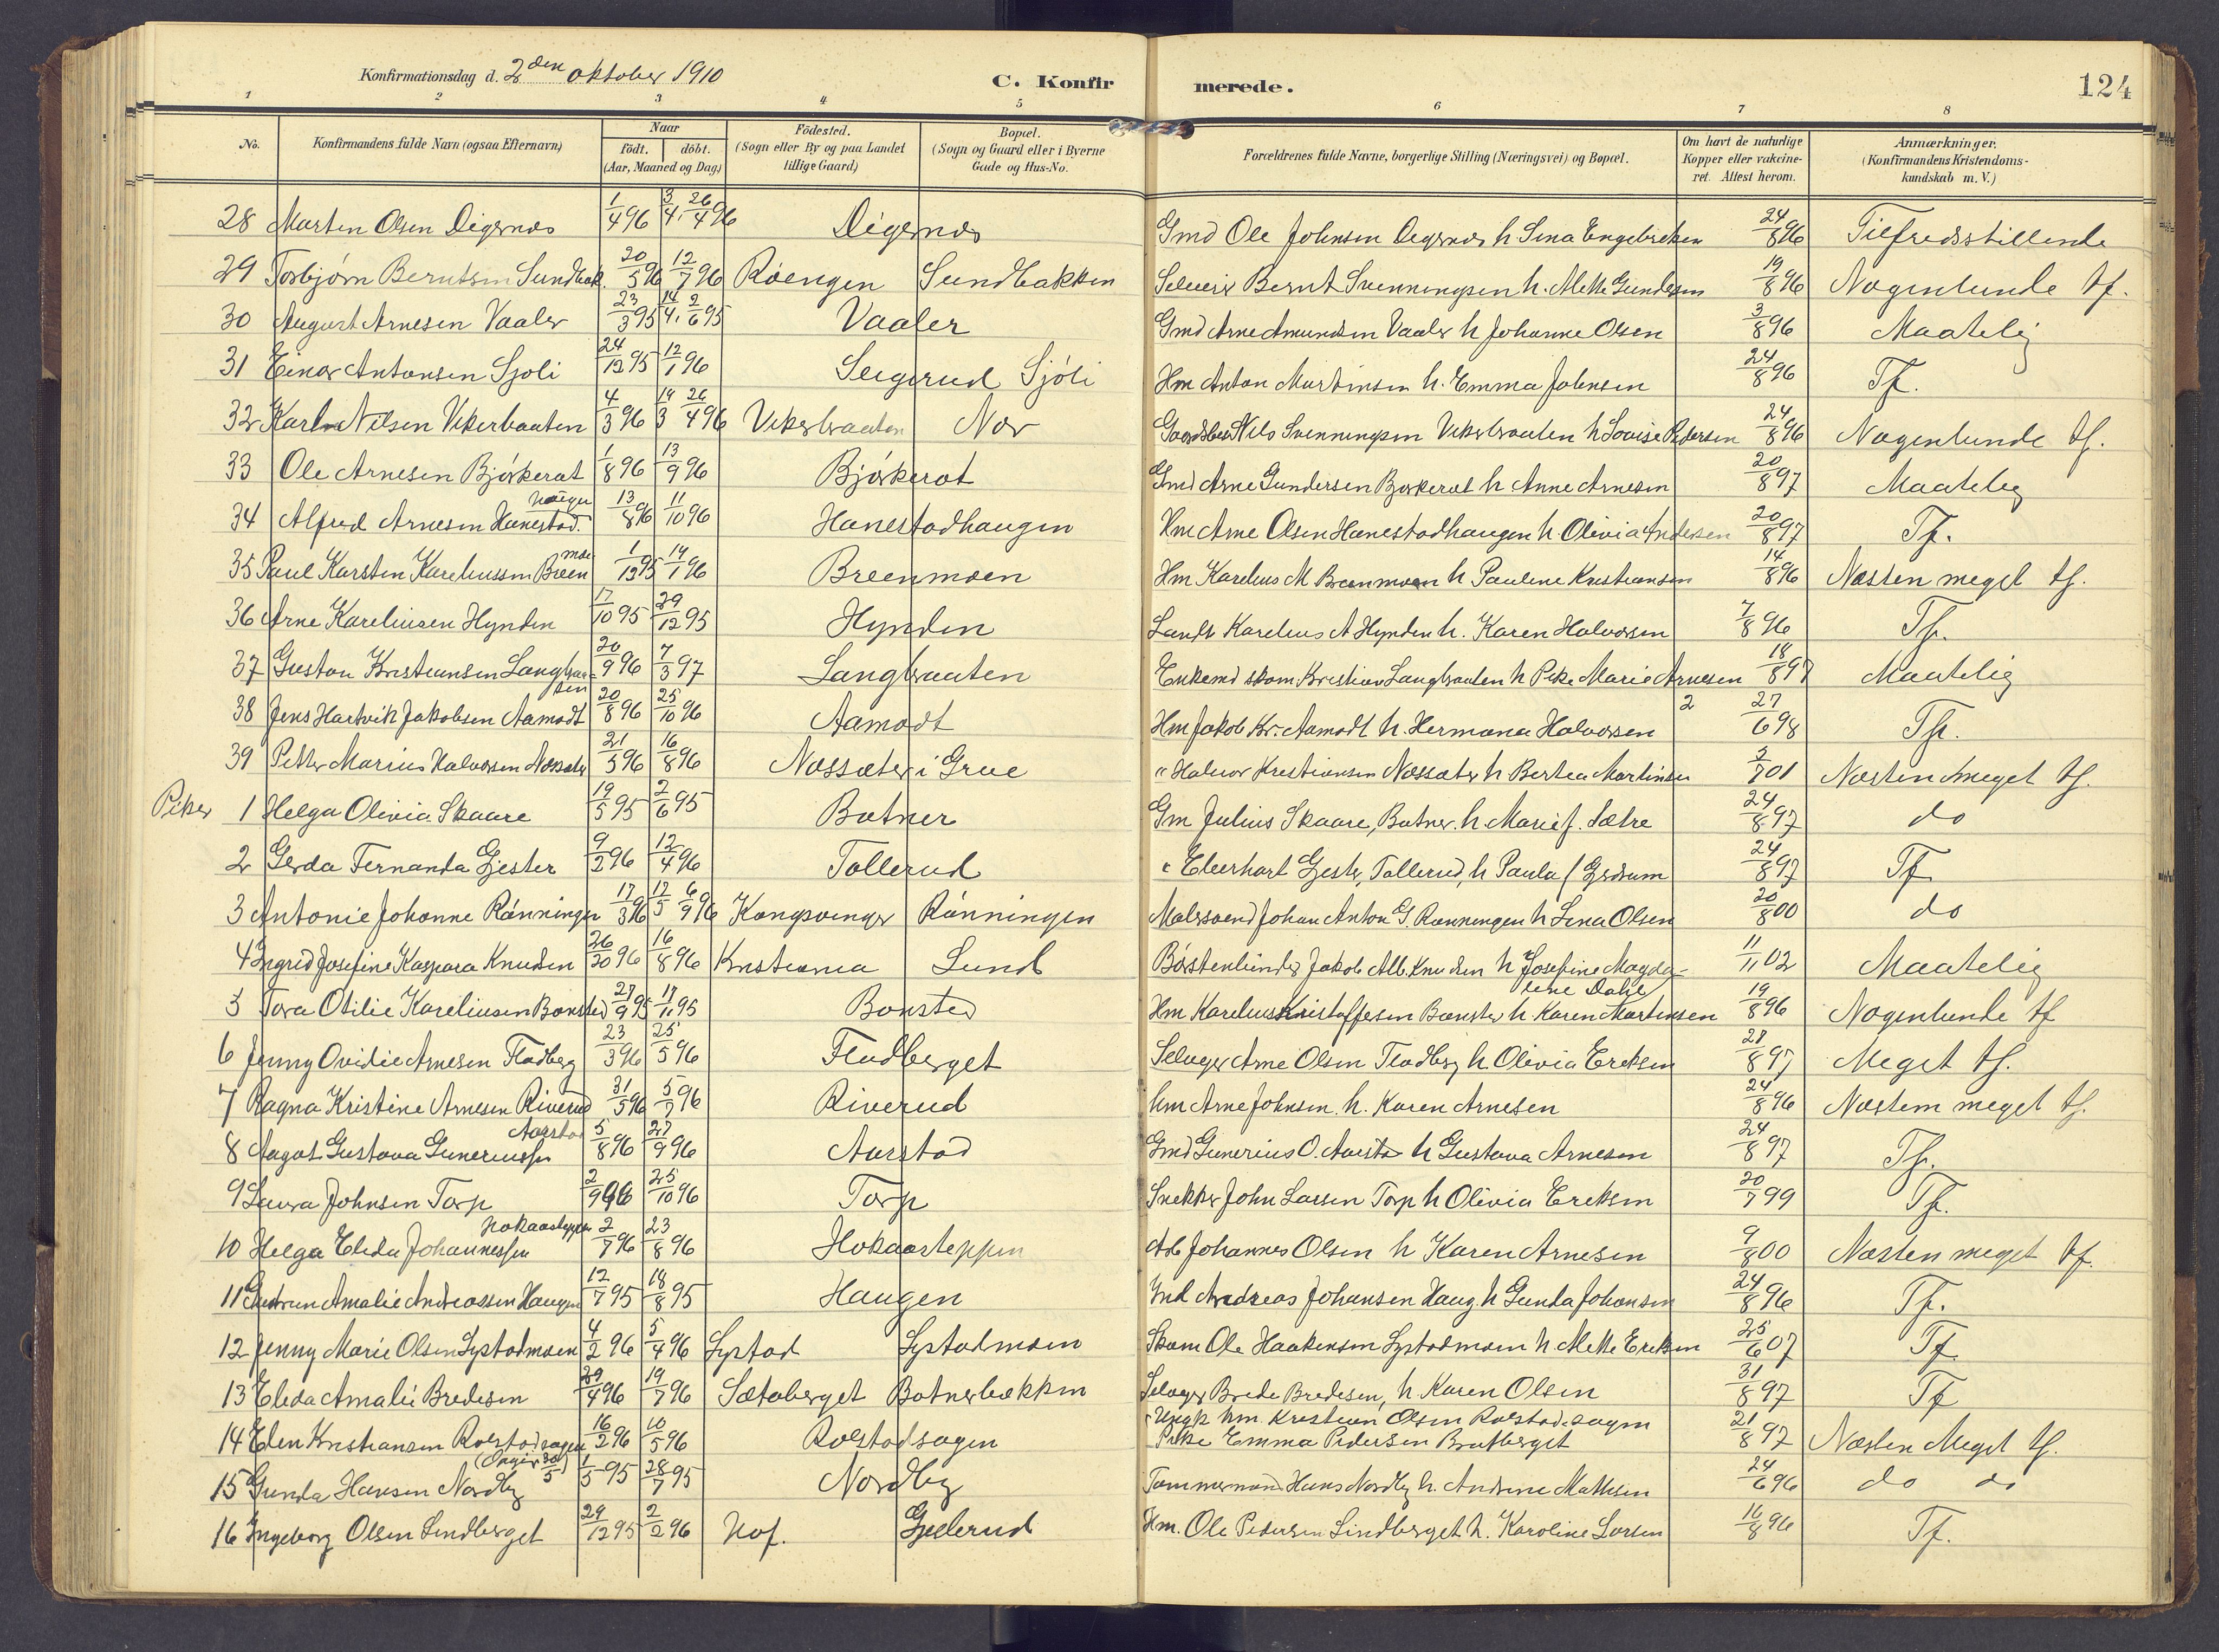 Konfirmationsdag d. 2den oktober 1910
C. Konfirmerede.
124
1 2 3 4 5 6 7 8
No. Konfirmandens fulde Navn (ogsaa Efternavn) Naar födt. döbt. (Aar, Maaned og Dag) Födested. (Sogn eller By og paa Landet tillige Gaard) Bopæl. (Sogn og Gaard eller i Byerne Gade og Hus-No. Forældrenes fulde Navne, borgerlige Stilling (Næringsvei) og Bopæl. Om havt de naturlige Kopper eller vakcineret. Attest herom. Anmærkninger. (Konfirmandens Kristendomskundskab m. V.)
28 Marten Olsen Digernæs 1/4 96 3/4, 26/4 96 Digernæs Gmd Ole Johnsen Degernæs h Lina Engebretsen 24/8 96 Tilfredsstillende
29 Torbjörn Berntsen Sundbak. 20/5 96 12/7 96 Röengen Sundbakken Selveier Bernt Svenningsen h. Mette Gundersen 19/8 96 Nogenlunde tf.
30 August Arnesen Vaaler 23/3 95 14/4, 2/6 95 Vaaler Gmd Arne Amundsen Vaaler h Johanne Olsen 3/8 96 Maatelig
31 Einar Antonsen Sjöli 24/12 95 12/1 96 Seigerud Sjöli Hm Anton Martinsen h. Emma Johnsen 24/8 96 Tf.
32 Karl Nilsen Vikerbraaten 4/3 96 19/3 26/4 96 Vikerbraaten Nor Gaardsbest Nils Svenningsen Vikerbraaten h Lovise Pedersen 24/8 96 Nogenlunde tf.
33 Ole Arnesen Björkerot 1/8 96 13/9 96 Björkerot Gmd Arne Gundersen Bjorkerot h Anne Arnesen 20/8 97 Maatelig
34 Alfred Arnesen Hanestadhaugen 13/8 96 11/10 96 Hanestadhaugen Hm Arne Olsen Hanestadhaugen h. Olivia Andersen 20/8 97 Tf.
35 Paul Karsten Kareliussen Breenmoe 1/12 95 19/1 96 Breenmoen Hm Karelius M Breenmoen h Pauline Kristiansen 14/8 96 Næsten meget tf.
36 Arne Kareliusen Hynden 17/10 95 29/12 95 Hynden Landh Karelius A Hynden h. Karen Halvorsen 7/8 96 Tf.
37 Gustav Kristiansen Langbraaten 20/9 96 7/3 97 Langbraaten Enkemd skom Kristian Langbraaten h Pike Marie Arnesen 18/8 97 Maatelig
38 Jens Hartvik Jakobsen Aamodt 20/8 96 25/10 96 Aamodt Hm Jakob Kr. Aamodt h. Hermana Halvorsen 2 27/6 98 Tf.
39 Petter Marius Halvorsen Næssæter 21/5 96 16/8 96 Næssæter i Grue " Halvor Kristiansen Næssæter h Bertea Martinsen 2/7 01 Næsten meget tf.
Piker 1 Helga Olivia Skaare 19/5 95 2/6 95 Botner Gm Julius Skaare, Botner. h. Marie f. Sætre 24/8 97 do
2 Gerda Fernanda Gjester 9/2 96 12/4 96 Tollerud " Eleerhart Gjester, Tollerud, h Paula f Gjerdrum 24/8 97 Tf
3 Antonie Johanne Rönningen 17/3 96 17/5 6/9 96 Kongsvinger Rönningen Malersvend Johan Anton G. Rønningen h Lina Olsen 20/8 00 do
4 Ingrid Josefine Kaspara Knudsen 26/20 96 16/8 96 Kristiania Lund Börstenbinder Jakob Alb. Knudsen h Josefine Magdalene Dahl 11/11 02 Maatelig
5 Tora Otilie Kareliusen Bonsted 29/9 95 17/11 95 Bonsted Hm Karelius Kristoffersen Bønsted h. Karen Martinsen 19/8 96 Nogenlunde tf
6 Jenny Ovidie Arnesen Flodberg 23/3 96 25/5 96 Flodberget Selveyer Arne Olsen Flodberg h Olivia Eriksen 28/8 97 Meget tf.
7 Ragna Kristine Arnesen Riverud 31/5 96 5/7 96 Riverud Hm Arne Johnsen. h. Karen Arnesen 24/8 96 Næsten meget tf.
8 Aagot Gustava Gunerius Aarstad 5/8 96 27/9 96 Aarstad Gmd Gunerius O. Aarsta h Gustava Arnesen 24/8 97 Tf.
9 Laura Johnsen Torp 2/9 96 25/10 96 Torp Snekker John Larsen Torp h Olivia Eriksen 20/7 99 Tf.
10 Helga Elida Johannessen Hokaasteppen 2/7 96 23/8 96 Hokaasteppen Arb Johannes Olsen h Karen Arnesen 9/8 00 Næsten meget tf.
11 Gudrun Amalie Andreassen Haugen 12/7 95 18/8 95 Haugen Ind Andreas Johansen Haug. h Gunda Johansen 24/8 96 Tf.
12 Jenny Marie Olsen Lystadmoen 4/2 96 5/4 96 Lystad Lystadmoen Skom Ole Haakensen Lystadmoen h. Mette Eriksen 25/6 07 Tf
13 Elida Amalie Bredesen 29/4 96 19/7 96 Sætaberget Botnerbækken Selveyer Brede Bredesen, h. Karen Olsen 31/8 97 Tf
14 Elen Kristiansen Rolstadsagen 16/2 96 10/5 96 Rolstadsagen Ungk hm. Kristian Olsen Rolstadsagen Pike Emma Pedersen Bratberget 21/8 97 Næsten Meget tf.
15 Gunda Hansen Nordby (Angir 30/5) 1/5 95 28/7 95 Nordby Tømmermand Hans Nordby h. Andrine Mathisen 24/6 96 do do
16 Ingeborg Olsen Lindberget 29/12 95 2/2 96 Hof. Gjelerud Hm. Ole Pedersen Lindberget h. Karoline Larsen 16/8 96 Tf.